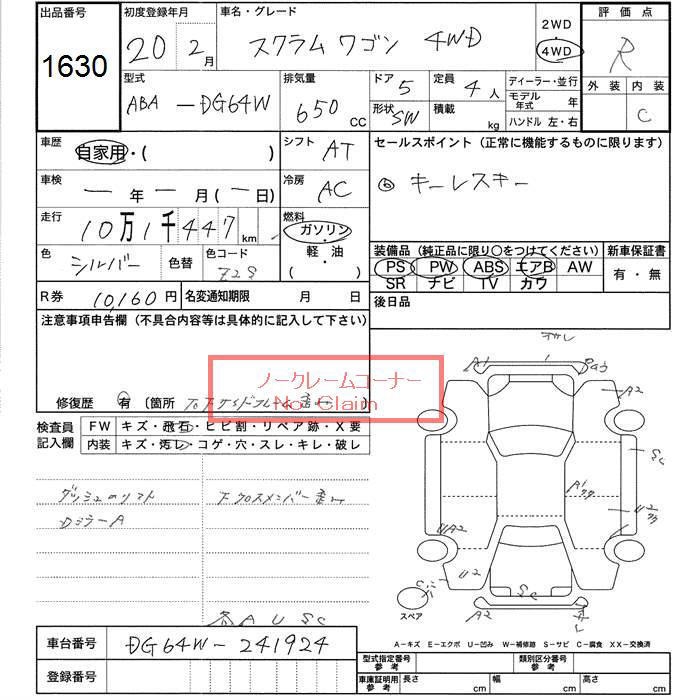 出品番号
1630
初度登録年月
20 2月
車名・グレード
スクラムワゴン 4WD
2WD
4WD
評価点
R
外装 内装
C
型式
ABA-DG64W
排気量
650 CC
ドア 5
定員 4人
形状 SW
積載 kg
ディーラー・並行
モデル年式 年
ハンドル 左・右
車歴
自家用・( )
シフト AT
セールスポイント(正常に機能するものに限ります)
⑥ キーレスキー
車検
ー年ー月(ー日)
冷房 AC
走行
10万1千447km
燃料
ガソリン・
軽・油
( )
色 シルバー
色替
色コード Z2S
装備品(純正品に限り○をつけてください)
PS PW ABS エアB AW
SR ナビ TV カワ
新車保証書
有・無
R券 10,160円
名変通知期限 月 日
後日品
注意事項申告欄(不具合内容等は具体的に記入して下さい)
ノークレームコーナー
No Claim
修復歴 有 〔箇所
検査員記入欄
FW キズ・飛石・ヒビ割・リペア跡・X要
内装 キズ・汚レ・コゲ・穴・スレ・キレ・破レ
DミラーA
A U SC
A1
A2
SC
A1
U2
UA2
U2
SC
A2
A2
スペア
A-キズ E-エクボ U-凹み W-補修跡 S-サビ C-腐食 XX-交換済
車台番号 DG64W-241924
登録番号
型式指定番号 参考
類別区分番号 参考
車庫証明用 参考
長さ cm 幅 cm 高さ cm